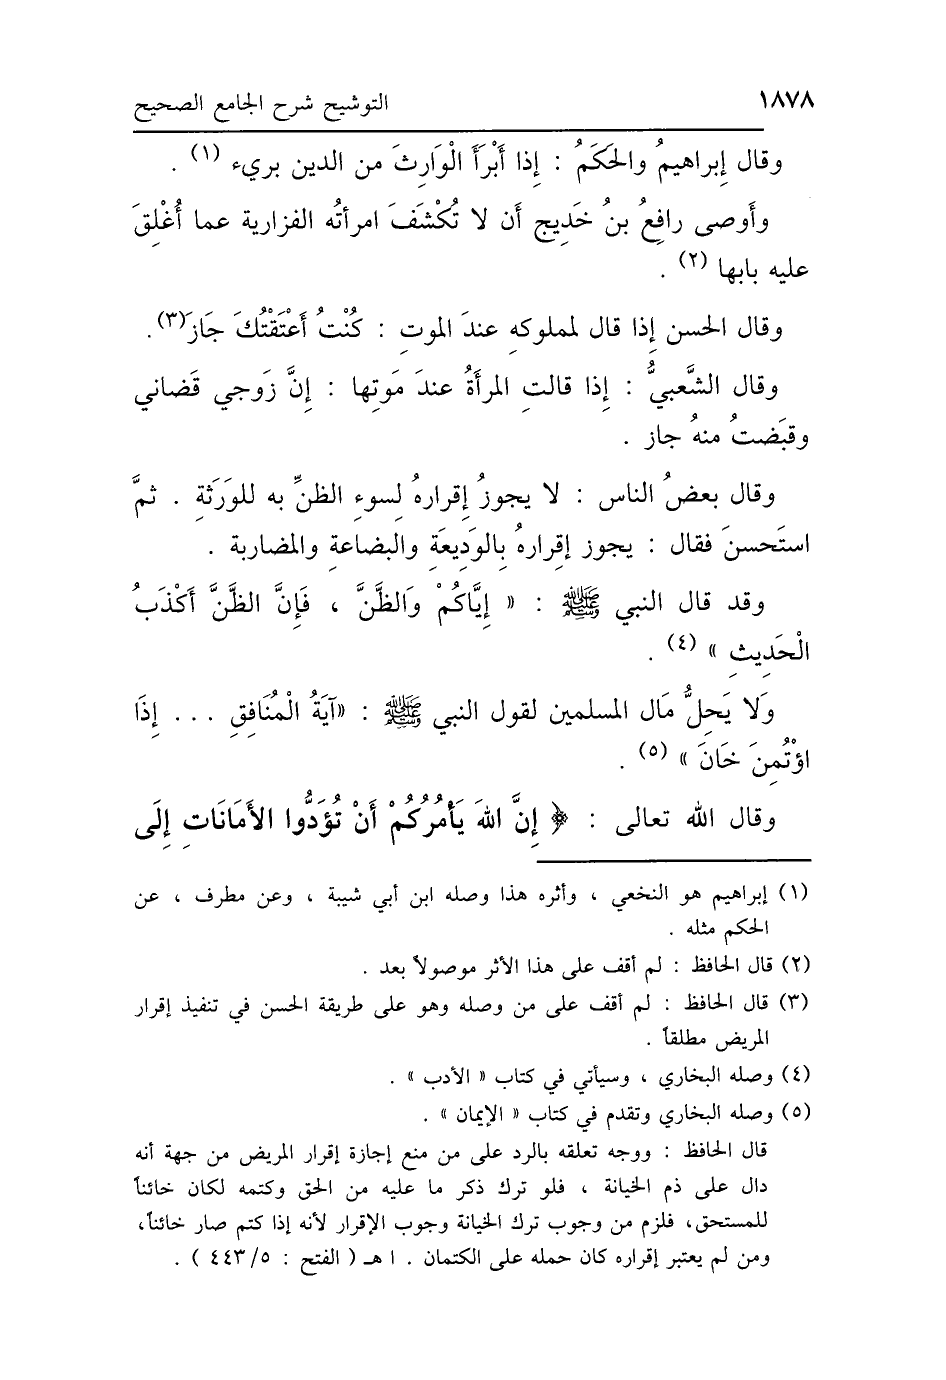 ١٨٧٨ التوشيح شرح الجامع الصحيح
وقال إِبراهيمُ والحَكَمُ : إِذا أَبْرَأَ الْوَارِثَ من الدين بريء (١) .
وأَوصى رافِعُ بنُ خَدِيج أَن لا تُكْشَفَ امرأتُه الفزارية عما أُغْلِقَ
عليه بابها (٢) .
وقال الحسن إِذا قال لمملوكهِ عندَ الموتِ : كُنْتُ أَعْتَقْتُكَ جَازَ(٣).
وقال الشَّعبيُّ : إِذا قالتِ المرأَةُ عندَ مَوتِها : إِنَّ زَوجي قَضاني
وقبَضتُ منهُ جاز .
وقال بعضُ الناس : لا يجوزُ إِقرارهُ لِسوءِ الظنِّ به للوَرَثةِ . ثمَّ
استَحسنَ فقال : يجوز إِقرارهُ بِالوَدِيعَةِ والبِضاعةِ والمُضاربة .
وقد قال النبي ﷺ : « إِيَّاكُمْ وَالظَّنَّ ، فَإِنَّ الظَّنَّ أَكْذَبُ
الْحَدِيثِ » (٤) .
وَلا يَحِلُّ مَال المسلمين لقول النبي ﷺ : «آيَةُ الْمُنَافِقِ ... إِذَا
اؤْتُمِنَ خَانَ » (٥) .
وقال الله تعالى : ﴿ إِنَّ اللهَ يَأمُرُكُمْ أَنْ تُؤَدُّوا الأَمَانَاتِ إِلَى
(١) إبراهيم هو النخعي ، وأثره هذا وصله ابن أبي شيبة ، وعن مطرف ، عن
الحكم مثله .
(٢) قال الحافظ : لم أقف على هذا الأثر موصولاً بعد .
(٣) قال الحافظ : لم أقف على من وصله وهو على طريقة الحسن في تنفيذ إقرار
المريض مطلقاً .
(٤) وصله البخاري ، وسيأتي في كتاب « الأدب » .
(٥) وصله البخاري وتقدم في كتاب « الإيمان » .
قال الحافظ : ووجه تعلقه بالرد على من منع إجازة إقرار المريض من جهة أنه
دال على ذم الخيانة ، فلو ترك ذكر ما عليه من الحق وكتمه لكان خائناً
للمستحق، فلزم من وجوب ترك الخيانة وجوب الإقرار لأنه إذا كتم صار خائناً،
ومن لم يعتبر إقراره كان حمله على الكتمان . ا هـ ( الفتح : ٥/ ٤٤٣ ) .